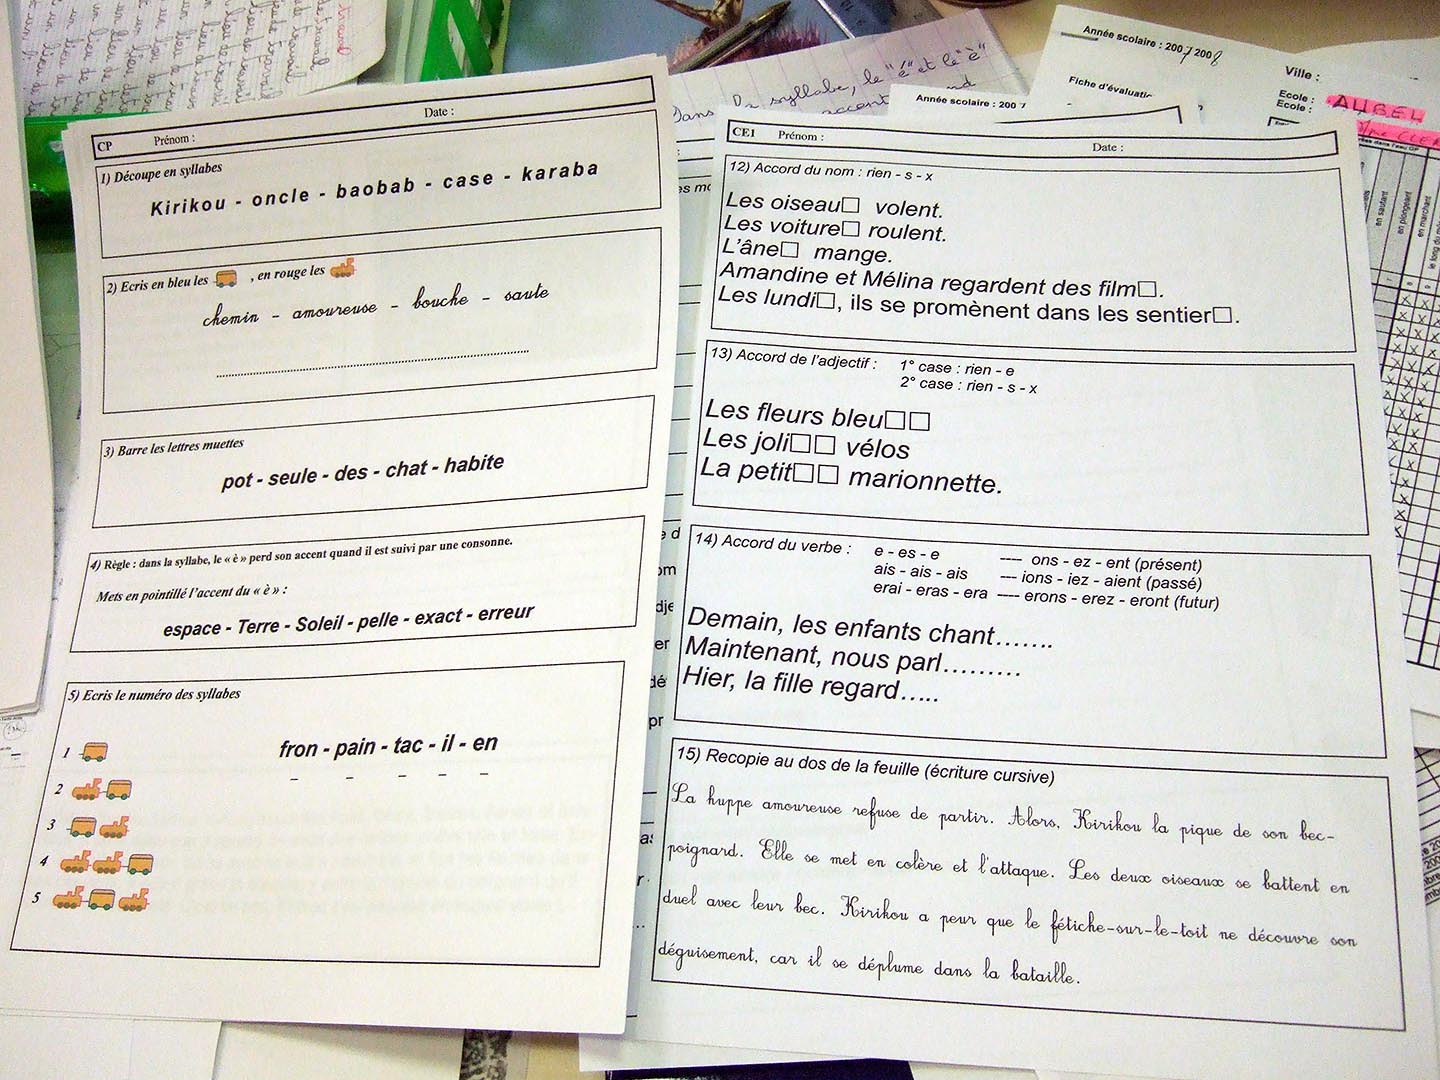 CP Prénom : Date :
1) Découpe en syllabes
Kirikou - oncle - baobab - case - karaba
2) Ecris en bleu les , en rouge les
chemin - amoureuse - bouche - saute
3) Barre les lettres muettes
pot - seule - des - chat - habite
4) Règle : dans la syllabe, le « è » perd son accent quand il est suivi par une consonne.
Mets en pointillé l'accent du « è » :
espace - Terre - Soleil - pelle - exact - erreur
5) Ecris le numéro des syllabes
fron - pain - tac - il - en
1
2
3
4
5
CE1 Prénom : Date :
12) Accord du nom : rien - s - x
Les oiseau□ volent.
Les voiture□ roulent.
L'âne□ mange.
Amandine et Mélina regardent des film□.
Les lundi□, ils se promènent dans les sentier□.
13) Accord de l'adjectif : 1° case : rien - e
2° case : rien - s - x
Les fleurs bleu□□
Les joli□□ vélos
La petit□□ marionnette.
14) Accord du verbe : e - es - e ---- ons - ez - ent (présent)
ais - ais - ais --- ions - iez - aient (passé)
erai - eras - era ---- erons - erez - eront (futur)
Demain, les enfants chant.......
Maintenant, nous parl.........
Hier, la fille regard.....
15) Recopie au dos de la feuille (écriture cursive)
La huppe amoureuse refuse de partir. Alors, Kirikou la pique de son bec-
poignard. Elle se met en colère et l'attaque. Les deux oiseaux se battent en
duel avec leur bec. Kirikou a peur que le fétiche-sur-le-toit ne découvre son
déguisement, car il se déplume dans la bataille.
syllabe, le "é" et le "è"
Année scolaire : 2007
Année scolaire : 2007 2008
Fiche d'évaluation
Ville :
Ecole :
Ecole :
en sautant
en plongeant
en marchant